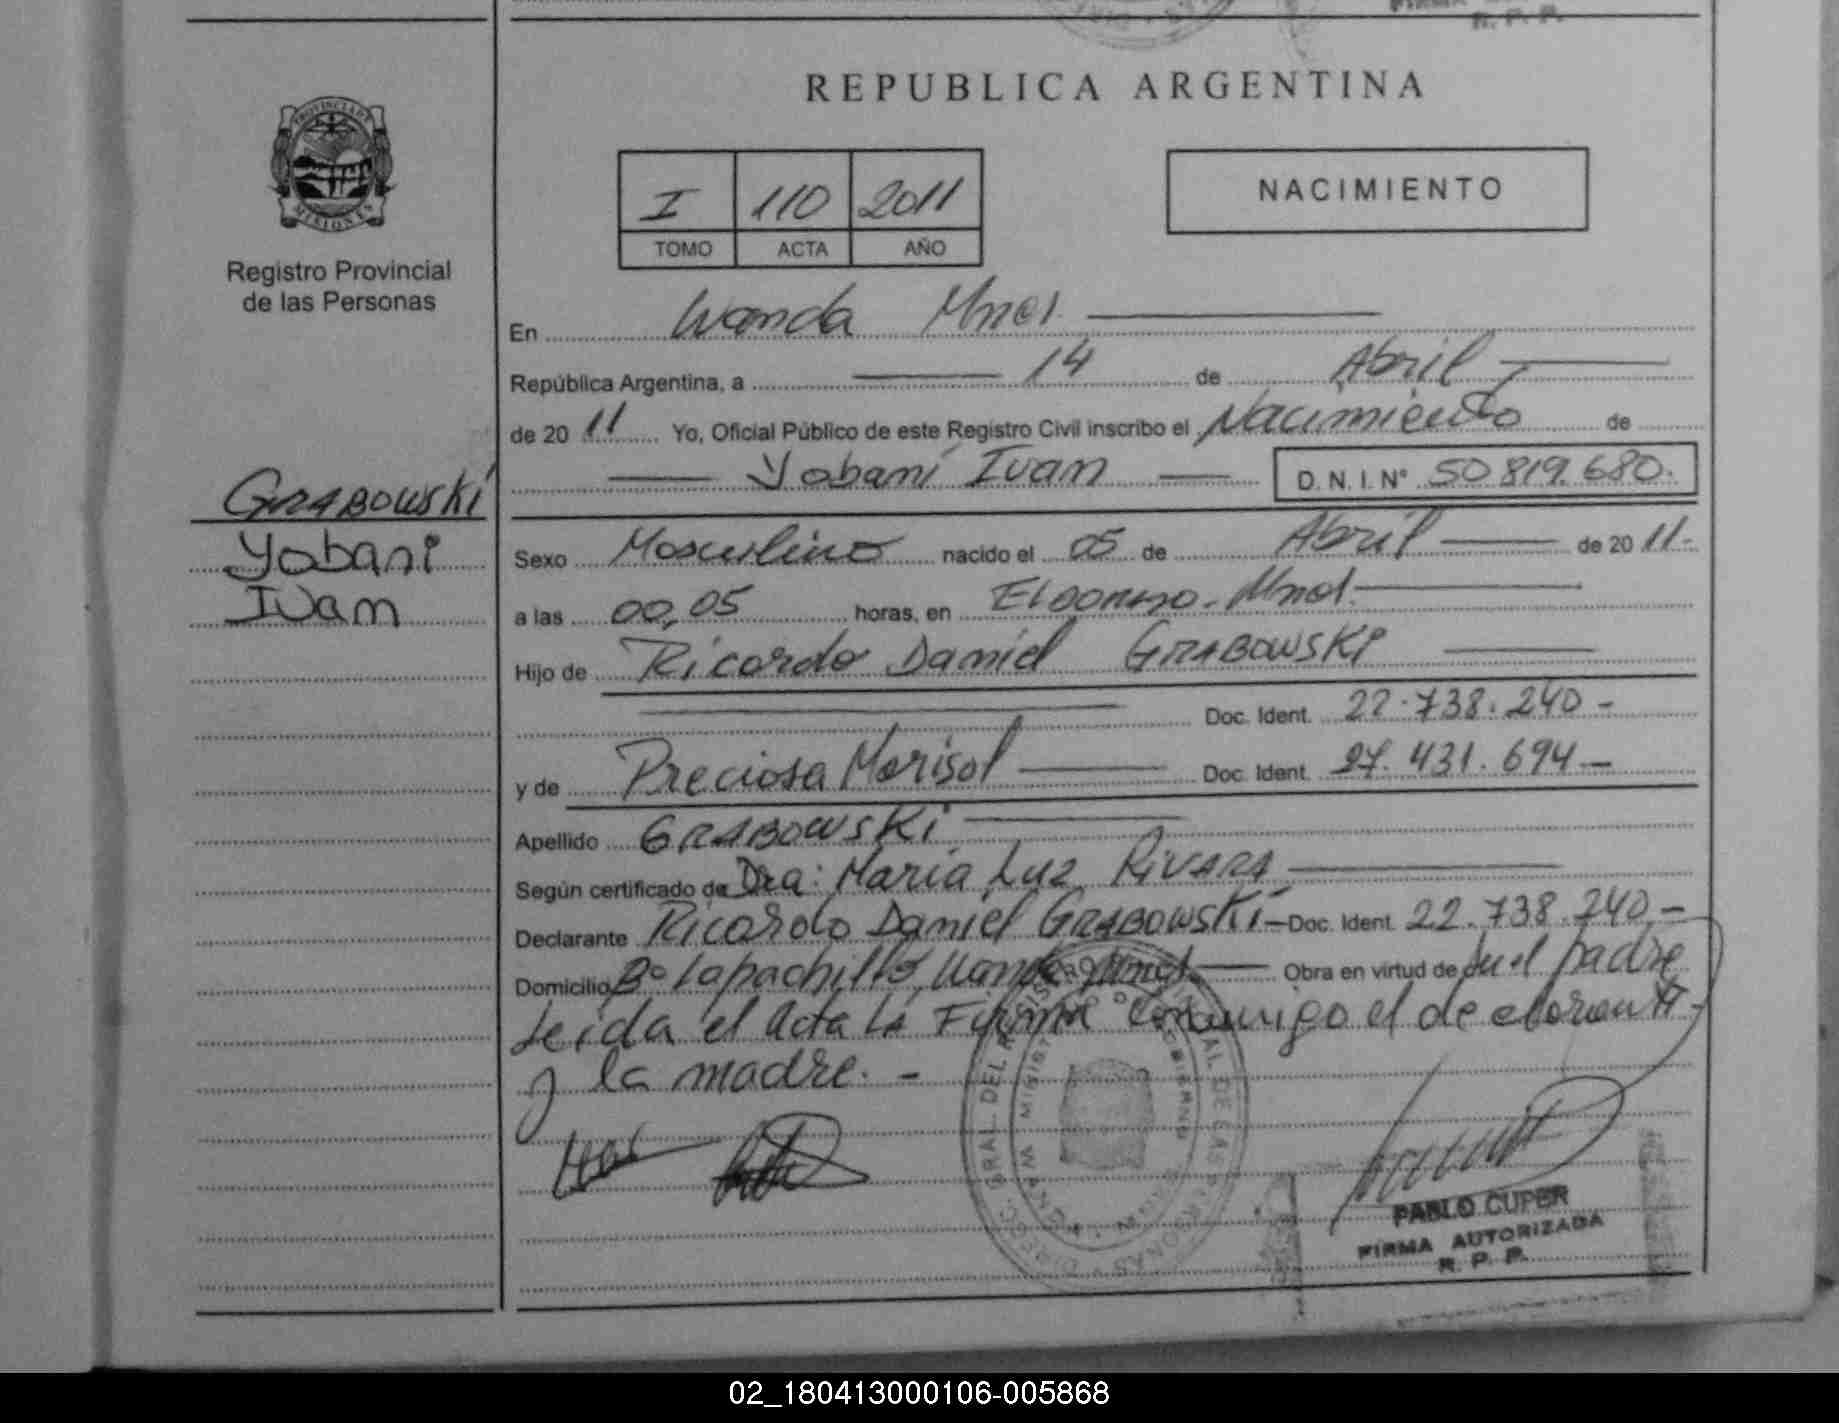 FIRMA
R. P. P.
REPUBLICA ARGENTINA
PROVINCIA DE
MISIONES
Registro Provincial
de las Personas
I 110 2011
TOMO ACTA AÑO
NACIMIENTO
En Wanda Mnes.
República Argentina, a 14 de Abril
de 2011 Yo, Oficial Público de este Registro Civil inscribo el Nacimiento de
Yobani Ivan D. N. I. N° 50 819.680.
GRABOWSKI
Yobani
Ivan
Sexo Masculino nacido el 05 de Abril de 2011-
a las 00,05 horas, en Eldorado-
Hijo de Ricardo Daniel GRABOWSKI
Doc. Ident. 22.738.240-
y de Preciosa Marisol Doc. Ident. 27.431.694-
Apellido GRABOWSKI
Según certificado de Dra: Maria Luz RIVARA
Declarante Ricardo Daniel GRABOWSKI- Doc. Ident. 22.738.240-
Domicilio B° Lapachillo, Wanda Obra en virtud de el padre
Leida el Acta la Firman conmigo el declarante
y la madre. -
PABLO CUPER
FIRMA AUTORIZADA
R. P. P.
02_180413000106-005868